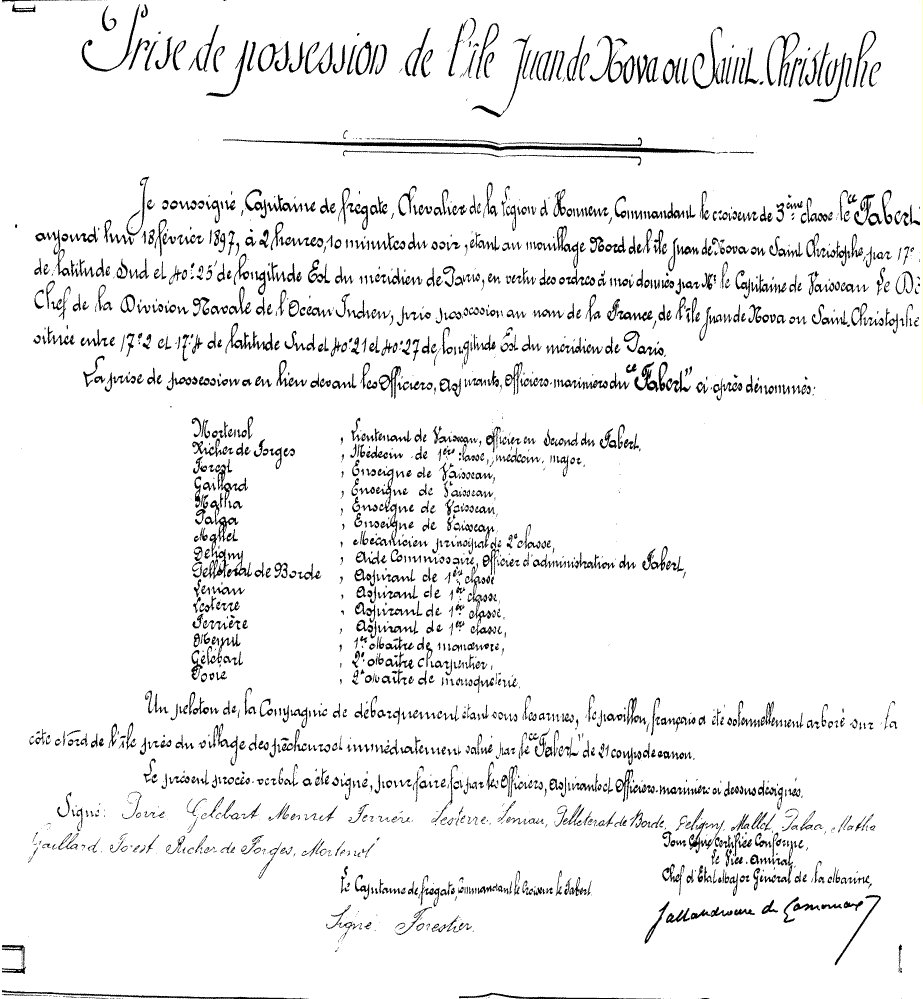 Prise de possession de l'île Juan de Nova ou Saint-Christophe
Je soussigné, Capitaine de frégate, Chevalier de la Légion d'Honneur, Commandant le croiseur de 3ème classe le "Fabert"
aujourd'hui 18 février 1897, à 2 heures, 10 minutes du soir, étant au mouillage Nord de l'île Juan de Nova ou Saint Christophe, par 17°
de latitude Sud et 40° 25' de longitude Est du méridien de Paris, en vertu des ordres à moi donnés par Mr le Capitaine de Vaisseau Le
Chef de la Division Navale de l'Océan Indien, pris possession au nom de la France, de l'île Juan de Nova ou Saint-Christophe
située entre 17°2 et 17°4 de latitude Sud et 40°21 et 40°27 de longitude Est du méridien de Paris.
La prise de possession a eu lieu devant les Officiers, Aspirants, Officiers-mariniers du "Fabert" ci après dénommés:
Mortenol , Lieutenant de Vaisseau, Officier en Second du Fabert,
Richer de Forges , Médecin de 1ère classe, médecin, major,
Forest , Enseigne de Vaisseau,
Gaillard , Enseigne de Vaisseau,
Matha , Enseigne de Vaisseau,
, Enseigne de Vaisseau,
Mallet , Mécanicien principal de 2e classe,
, Aide Commissaire, Officier d'administration du Fabert,
Pelleterat de Borde , Aspirant de 1ère classe
, Aspirant de 1ère classe,
Lesterre , Aspirant de 1ère classe,
Ferrière , Aspirant de 1ère classe,
, 1er Maître de manœuvre,
Gélébart , 2e Maître charpentier,
, 2e Maître de mousqueterie.
Un peloton de la Compagnie de débarquement étant sous les armes, le pavillon français a été solennellement arboré sur la
côte Nord de l'île près du village des pêcheurs et immédiatement salué par le "Fabert" de 21 coups de canon.
Le présent procès-verbal a été signé, pour faire foi par les Officiers, aspirants et Officiers-mariniers ci dessus désignés.
Signé: Gelebart Ferrière Lesterre Pelleterat de Borde, Mallet, Matha
Gaillard, Forest Richer de Forges, Mortenol
Pour Copie Certifiée Conforme,
Le Vice-Amiral,
Chef d'Etat Major Général de la Marine,
Le Capitaine de frégate, Commandant le Croiseur le Fabert
Signé: Forestier.